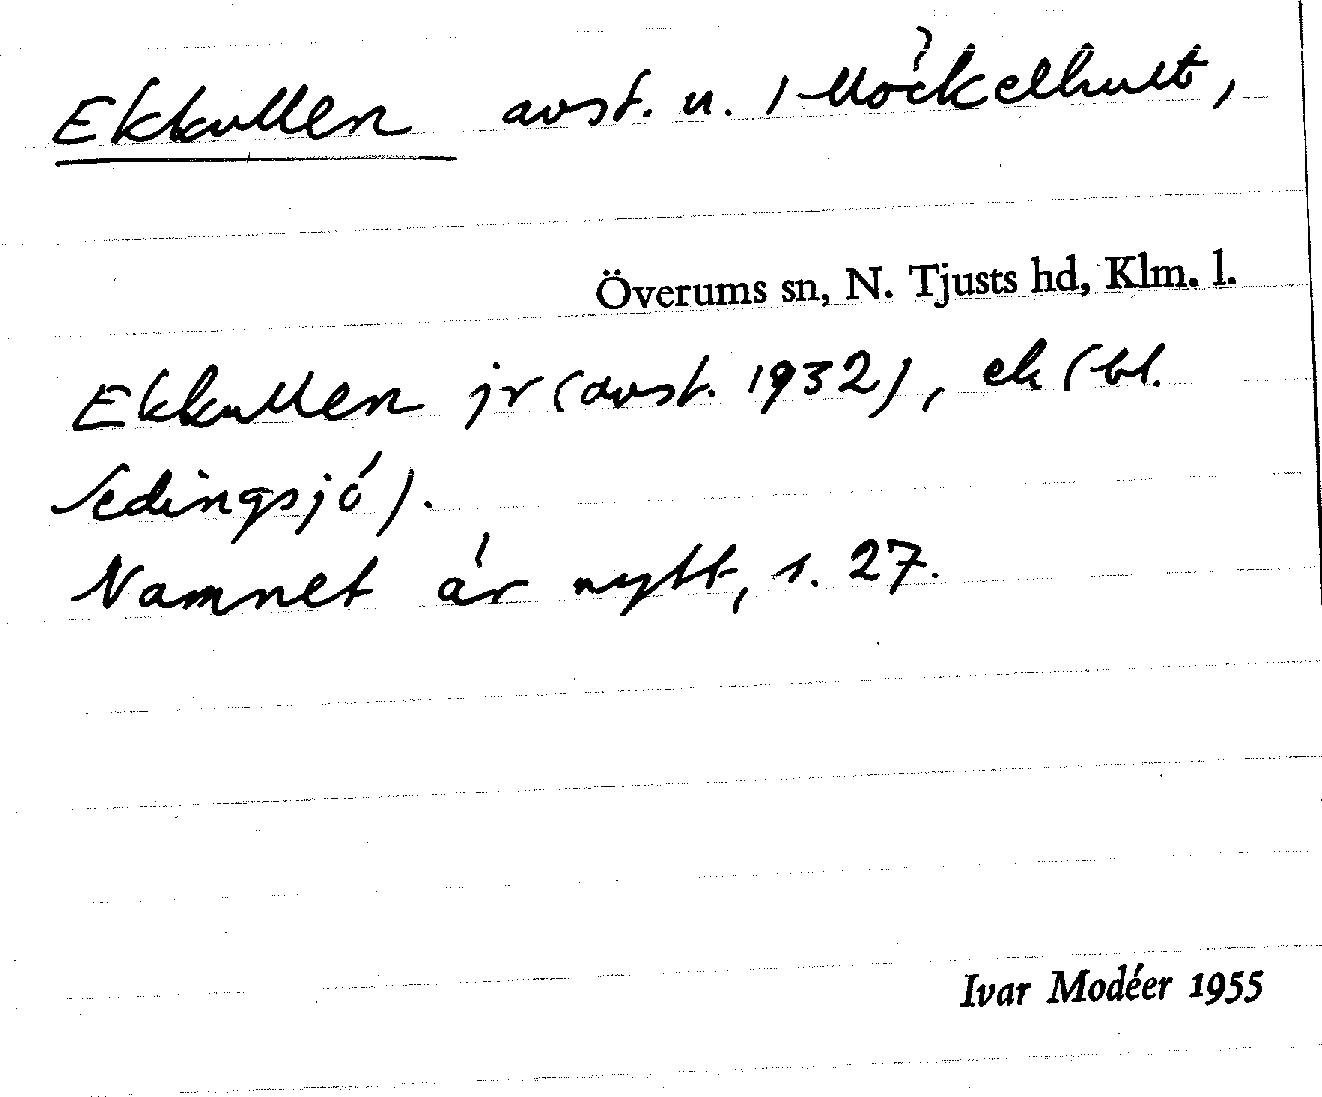 Ekkullen avst. u. 1 Möckelhult,
Överums sn, N. Tjusts hd, Klm. l.
Ekkullen jr (avst. 1932), ek (bl.
Vedingsjö).
Namnet är nytt, s. 27.
Ivar Modéer 1955